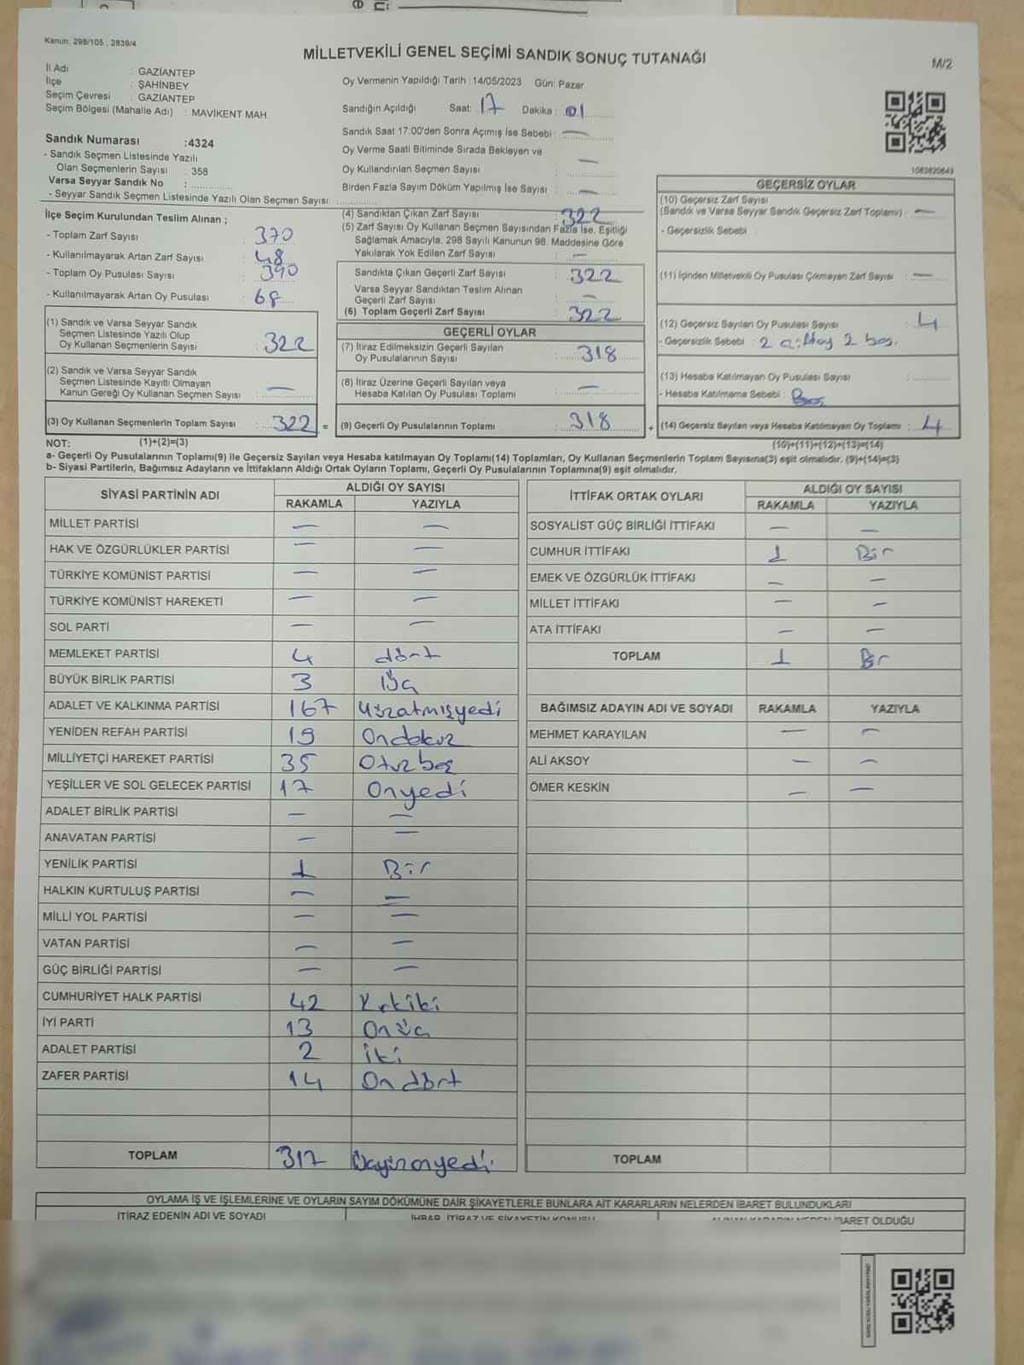 Kanun: 298/105, 2839/4
MİLLETVEKİLİ GENEL SEÇİMİ SANDIK SONUÇ TUTANAĞI
M/2
İl Adı : GAZİANTEP
İlçe : ŞAHİNBEY
Seçim Çevresi : GAZİANTEP
Seçim Bölgesi (Mahalle Adı) : MAVİKENT MAH
Oy Vermenin Yapıldığı Tarih : 14/05/2023 Gün: Pazar
Sandığın Açıldığı Saat: 17 Dakika : 01
Sandık Saat 17:00'den Sonra Açılmış İse Sebebi : —
Oy Verme Saati Bitiminde Sırada Bekleyen ve
Oy Kullandırılan Seçmen Sayısı —
Birden Fazla Sayım Döküm Yapılmış İse Sayısı —
1083820649
Sandık Numarası :4324
- Sandık Seçmen Listesinde Yazılı
Olan Seçmenlerin Sayısı : 358
Varsa Seyyar Sandık No :
- Seyyar Sandık Seçmen Listesinde Yazılı Olan Seçmen Sayısı :
İlçe Seçim Kurulundan Teslim Alınan ;
- Toplam Zarf Sayısı 370
- Kullanılmayarak Artan Zarf Sayısı : 48
- Toplam Oy Pusulası Sayısı : 390
- Kullanılmayarak Artan Oy Pusulası : 68
(1) Sandık ve Varsa Seyyar Sandık
Seçmen Listesinde Yazılı Olup
Oy Kullanan Seçmenlerin Sayısı : 322
(2) Sandık ve Varsa Seyyar Sandık
Seçmen Listesinde Kayıtlı Olmayan
Kanun Gereği Oy Kullanan Seçmen Sayısı : —
(3) Oy Kullanan Seçmenlerin Toplam Sayısı : 322 =
(4) Sandıktan Çıkan Zarf Sayısı 322
(5) Zarf Sayısı Oy Kullanan Seçmen Sayısından Fazla İse, Eşitliği
Sağlamak Amacıyla, 298 Sayılı Kanunun 98. Maddesine Göre
Yakılarak Yok Edilen Zarf Sayısı : —
Sandıkta Çıkan Geçerli Zarf Sayısı 322
Varsa Seyyar Sandıktan Teslim Alınan
Geçerli Zarf Sayısı —
(6) Toplam Geçerli Zarf Sayısı : 322
GEÇERLİ OYLAR
(7) İtiraz Edilmeksizin Geçerli Sayılan
Oy Pusulalarının Sayısı : 318
(8) İtiraz Üzerine Geçerli Sayılan veya
Hesaba Katılan Oy Pusulası Toplamı : —
(9) Geçerli Oy Pusulalarının Toplamı : 318 +
GEÇERSİZ OYLAR
(10) Geçersiz Zarf Sayısı
(Sandık ve Varsa Seyyar Sandık Geçersiz Zarf Toplamı) : —
- Geçersizlik Sebebi :
(11) İçinden Milletvekili Oy Pusulası Çıkmayan Zarf Sayısı : —
(12) Geçersiz Sayılan Oy Pusulası Sayısı : 4
- Geçersizlik Sebebi : 2 2 boş.
(13) Hesaba Katılmayan Oy Pusulası Sayısı
- Hesaba Katılmama Sebebi : Boş
(14) Geçersiz Sayılan veya Hesaba Katılmayan Oy Toplamı : 4
NOT: (1)+(2)=(3) (10)+(11)+(12)+(13)=(14)
a- Geçerli Oy Pusulalarının Toplamı(9) ile Geçersiz Sayılan veya Hesaba katılmayan Oy Toplamı(14) Toplamları, Oy Kullanan Seçmenlerin Toplam Sayısına(3) eşit olmalıdır. (9)+(14)=(3)
b- Siyasi Partilerin, Bağımsız Adayların ve İttifakların Aldığı Ortak Oyların Toplamı, Geçerli Oy Pusulalarının Toplamına(9) eşit olmalıdır.
SİYASİ PARTİNİN ADI ALDIĞI OY SAYISI
RAKAMLA YAZIYLA
MİLLET PARTİSİ — —
HAK VE ÖZGÜRLÜKLER PARTİSİ — —
TÜRKİYE KOMÜNİST PARTİSİ — —
TÜRKİYE KOMÜNİST HAREKETİ — —
SOL PARTİ — —
MEMLEKET PARTİSİ 4 dört
BÜYÜK BİRLİK PARTİSİ 3 Üç
ADALET VE KALKINMA PARTİSİ 167 Yüzatmışyedi
YENİDEN REFAH PARTİSİ 19 Ondokuz
MİLLİYETÇİ HAREKET PARTİSİ 35 Otuzbeş
YEŞİLLER VE SOL GELECEK PARTİSİ 17 Onyedi
ADALET BİRLİK PARTİSİ — —
ANAVATAN PARTİSİ — —
YENİLİK PARTİSİ 1 Bir
HALKIN KURTULUŞ PARTİSİ — —
MİLLİ YOL PARTİSİ — —
VATAN PARTİSİ — —
GÜÇ BİRLİĞİ PARTİSİ — —
CUMHURİYET HALK PARTİSİ 42 Kırkiki
İYİ PARTİ 13 Onüç
ADALET PARTİSİ 2 İki
ZAFER PARTİSİ 14 Ondört
TOPLAM 317 Üçyüzonyedi
İTTİFAK ORTAK OYLARI ALDIĞI OY SAYISI
RAKAMLA YAZIYLA
SOSYALİST GÜÇ BİRLİĞİ İTTİFAKI — —
CUMHUR İTTİFAKI 1 Bir
EMEK VE ÖZGÜRLÜK İTTİFAKI — —
MİLLET İTTİFAKI — —
ATA İTTİFAKI — —
TOPLAM 1 Bir
BAĞIMSIZ ADAYIN ADI VE SOYADI RAKAMLA YAZIYLA
MEHMET KARAYILAN — —
ALİ AKSOY — —
ÖMER KESKİN — —
TOPLAM
OYLAMA İŞ VE İŞLEMLERİNE VE OYLARIN SAYIM DÖKÜMÜNE DAİR ŞİKAYETLERLE BUNLARA AİT KARARLARIN NELERDEN İBARET BULUNDUKLARI
İTİRAZ EDENİN ADI VE SOYADI İHBAR, İTİRAZ VE ŞİKAYETİN KONUSU İBARET OLDUĞU